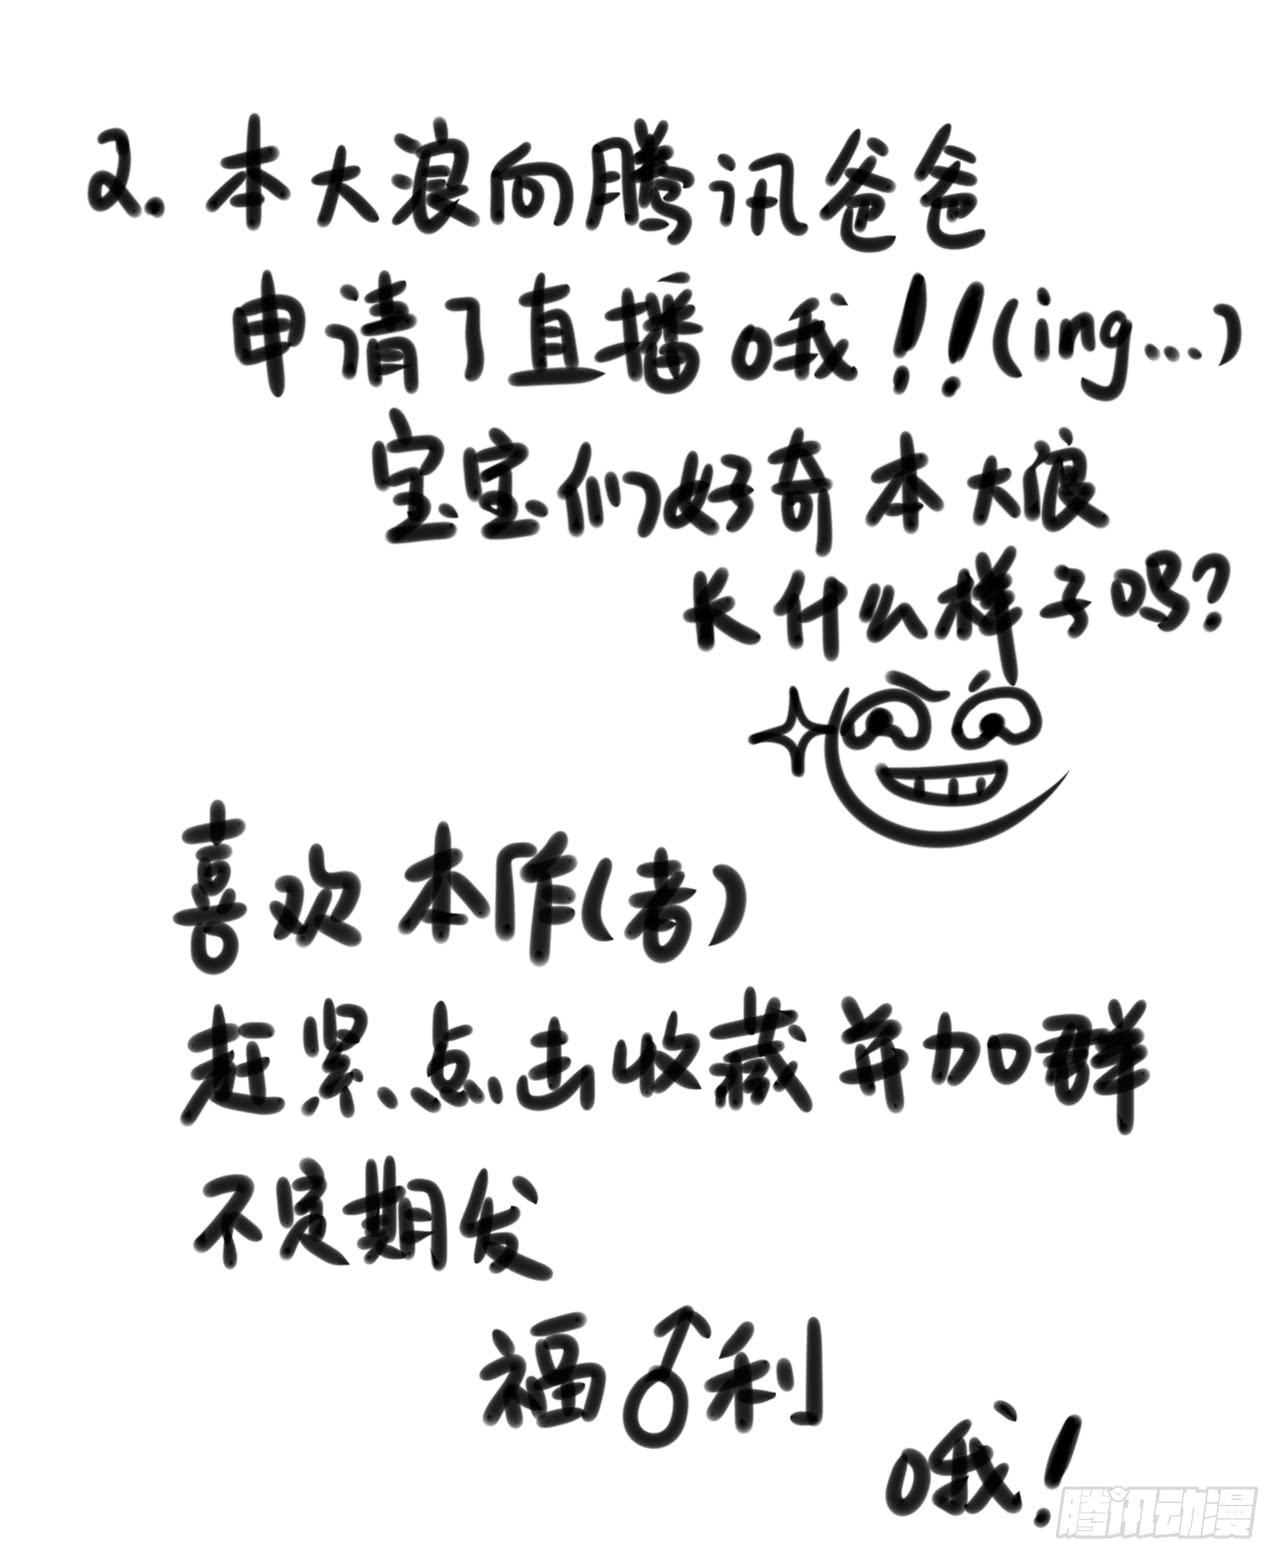 2. 本大浪向腾讯爸爸
申请了直播哦!!(ing...)
宝宝们好奇本大浪
长什么样子吗?
喜欢本作(者)
赶紧点击收藏并加群
不定期发
福♂利
哦!
腾讯动漫